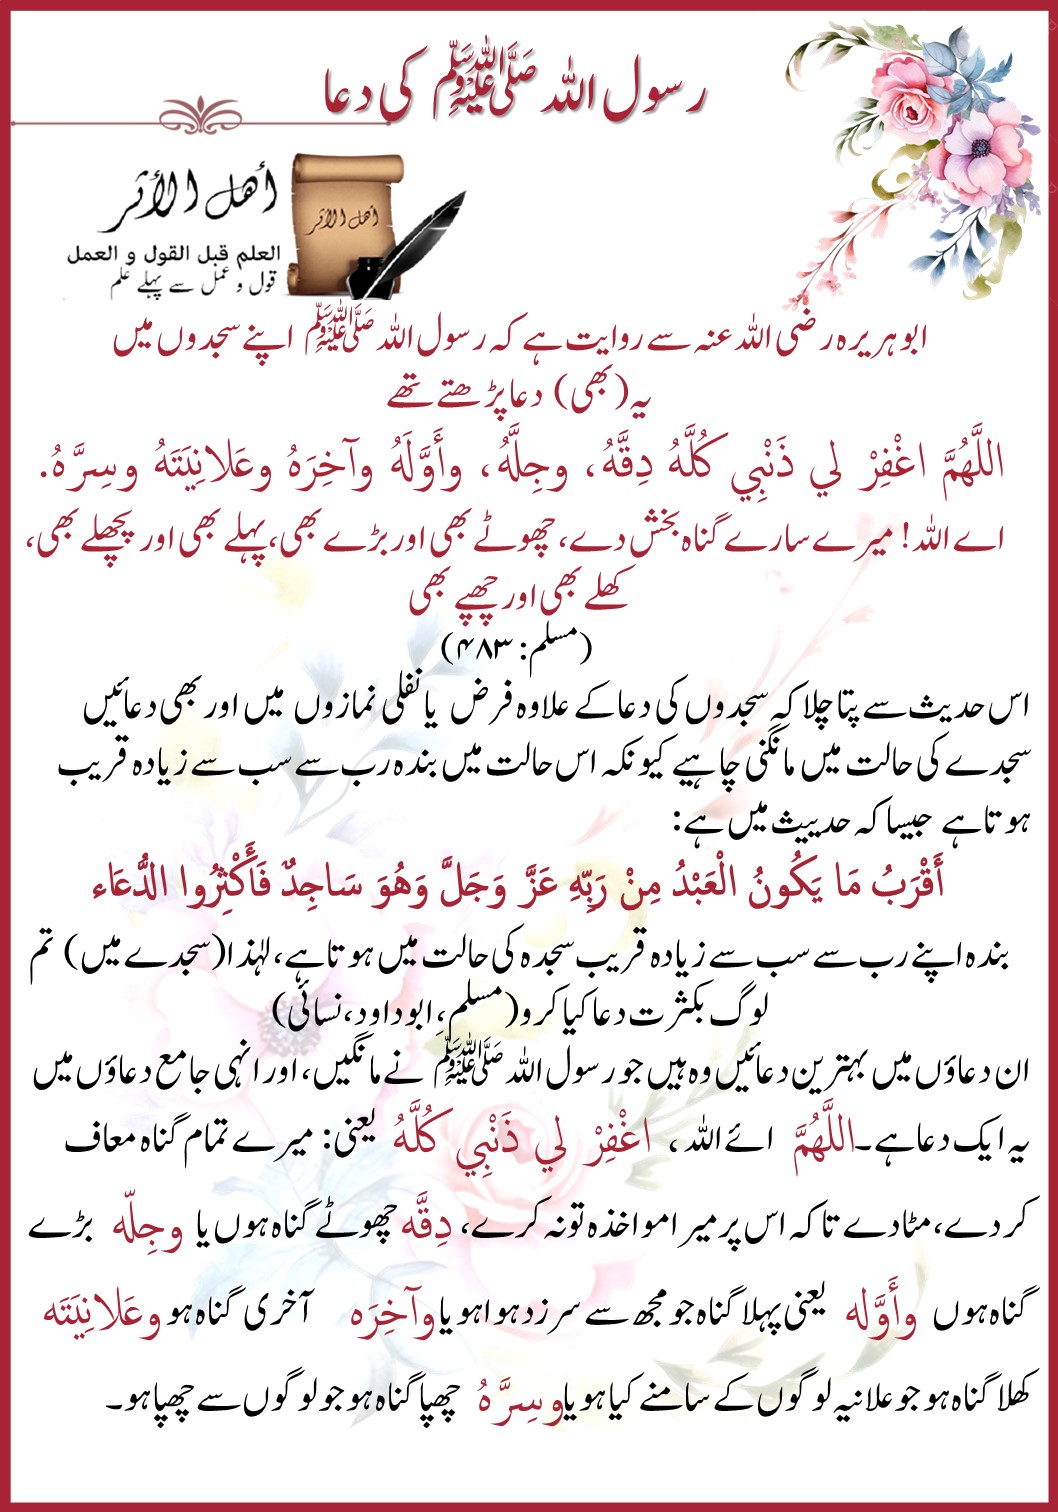 رسول اللہ ﷺ کی دعا
أهل الأثر
أهل الأثر
العلم قبل القول و العمل
قول و عمل سے پہلے علم
ابو ہریرہ رضی اللہ عنہ سے روایت ہے کہ رسول اللہ ﷺ اپنے سجدوں میں
یہ (بھی) دعا پڑھتے تھے
اللَّهُمَّ اغْفِرْ لي ذَنْبِي كُلَّهُ دِقَّهُ، وجِلَّهُ، وأَوَّلَهُ وآخِرَهُ وعَلانِيَتَهُ وسِرَّهُ.
اے اللہ! میرے سارے گناہ بخش دے، چھوٹے بھی اور بڑے بھی، پہلے بھی اور پچھلے بھی،
کھلے بھی اور چھپے بھی
(مسلم: ۴۸۳)
اس حدیث سے پتا چلا کہ سجدوں کی دعا کے علاوہ فرض یا نفلی نمازوں میں اور بھی دعائیں
سجدے کی حالت میں مانگنی چاہیے کیونکہ اس حالت میں بندہ رب سے سب سے زیادہ قریب
ہوتا ہے جیسا کہ حدییث میں ہے:
أَقْرَبُ مَا يَكُونُ الْعَبْدُ مِنْ رَبِّهِ عَزَّ وَجَلَّ وَهُوَ سَاجِدٌ فَأَكْثِرُوا الدُّعَاء
بندہ اپنے رب سے سب سے زیادہ قریب سجدہ کی حالت میں ہوتا ہے، لہٰذا (سجدے میں) تم
لوگ بکثرت دعا کیا کرو (مسلم، ابوداود، نسائی)
ان دعاؤں میں بہترین دعائیں وہ ہیں جو رسول اللہ ﷺ نے مانگیں، اور انہی جامع دعاؤں میں
یہ ایک دعا ہے۔ اللَّهُمَّ ائے اللہ ، اغْفِرْ لي ذَنْبِي كُلَّهُ یعنی: میرے تمام گناہ معاف
کر دے، مٹا دے تاکہ اس پر میرا مواخذہ تو نہ کرے، دِقَّه چھوٹے گناہ ہوں یا وجِلّه بڑے
گناہ ہوں وأَوَّله یعنی پہلا گناہ جو مجھ سے سرزد ہوا ہو یا وآخِرَه آخری گناہ ہو وعَلانِيَتَه
کھلا گناہ ہو جو علانیہ لوگوں کے سامنے کیا ہو یا وسِرَّهُ چھپا گناہ ہو جو لوگوں سے چھپا ہو۔